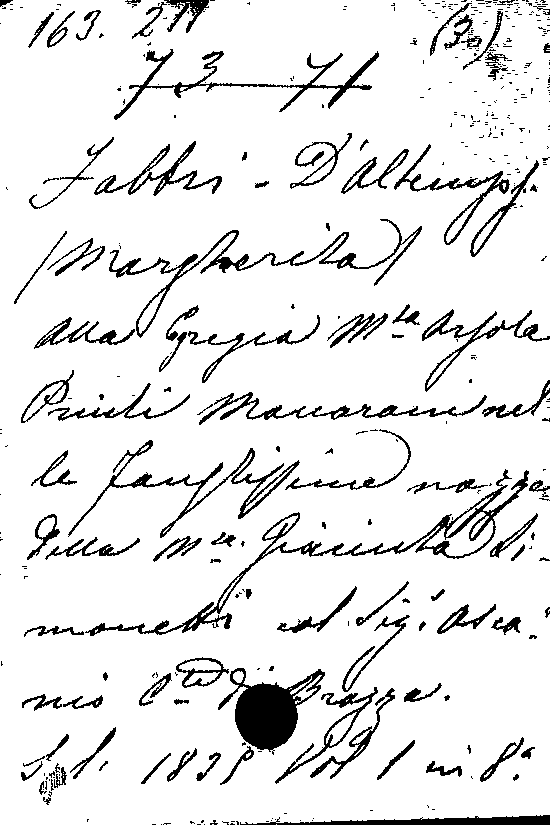 163. 211 (3.)
73 71
Fabbri - D'Altemps.
(Margherita)
Alla Egregia M.sa Orsola
Priuli Maccarani nel-
le faustissime nozze
della M.sa Giacinta Si-
monetti col Sig. Asca-
nio C.te di Brazza.
S. l. 1835 Vol 1 in 8.°